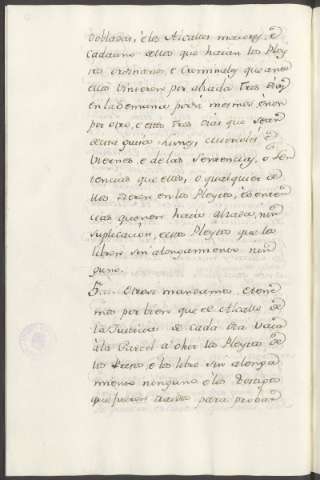 doblados, é los Alcalles maiores, é
cada uno dellos que hagan los Pley
tos ordinarios e Criminales que ante
ellos vinieren por alzada tres dias
en la semana por si mesmos e non
por otro, e estos tres dias que sean
de esta guisa: Lunes, Miercoles é
Viernes, e de las Sentencias, o Sen
tencias que ellos, o qualquier de
llos dieren en los Pleytos, é Senten
cias que non haia alzada, nin
suplicacion, e estos Pleytos que los
libren sin alongamiento nin
guno.
5. Otrosi mandamos, e tene
mos por bien que el Alcalle de
la Justicia de cada dia vaia
á la Carcel á ohir los Pleytos de
los Presos é los libre sin alonga
miento ninguno é los Testigos
que fueren traidos para probar